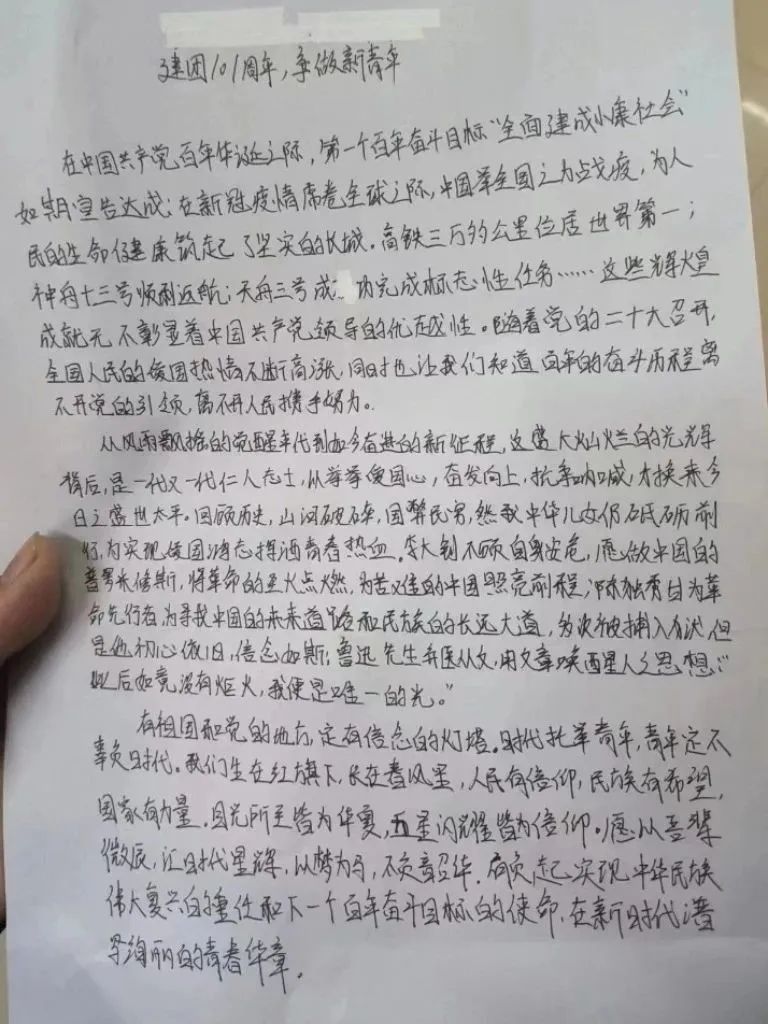 建团101周年，争做新青年
在中国共产党百年华诞之际，第一个百年奋斗目标"全面建成小康社会"
如期宣告达成；在新冠疫情席卷全球之际，中国举全国之力战疫，为人
民的生命健康筑起了坚实的长城。高铁三万多公里位居世界第一；
神舟十三号顺利返航；天舟三号成功完成标志性任务……这些辉煌
成就无不彰显着中国共产党领导的优越性。随着党的二十大召开，
全国人民的爱国热情不断高涨，同时也让我们知道百年的奋斗历程离
不开党的引领，离不开人民携手努力。
从风雨飘摇的觉醒年代到如今奋进的新征程，这盛大灿烂的光辉
背后，是一代又一代仁人志士，以拳拳爱国心，奋发向上，抗争呐喊，才换来今
日之盛世太平。回顾历史，山河破碎，国弊民穷，然我中华儿女仍砥砺前
行，为实现爱国消志挥洒青春热血。李大钊不顾自身安危，愿做中国的
普罗米修斯，将革命的星火点燃，为苦难的中国照亮前程；陈独秀甘为革
命先行者，为寻找中国的未来道路和民族的长远大道，多次被捕入狱，但
是他初心依旧，信念如斯；鲁迅先生弃医从文，用文章唤醒星人之思想："
此后如竟没有炬火，我便是唯一的光。"
有祖国和党的地方，定有信念的灯塔。时代托举青年，青年定不
辜负时代。我们生在红旗下，长在春风里，人民有信仰，民族有希望，
国家有力量。目光所至皆为华夏，五星闪耀皆为信仰。愿以吾辈
微辰，汇时代星辉，以梦为马，不负韶华，肩负起实现中华民族
伟大复兴的重任和下一个百年奋斗目标的使命，在新时代谱
写绚丽的青春华章。